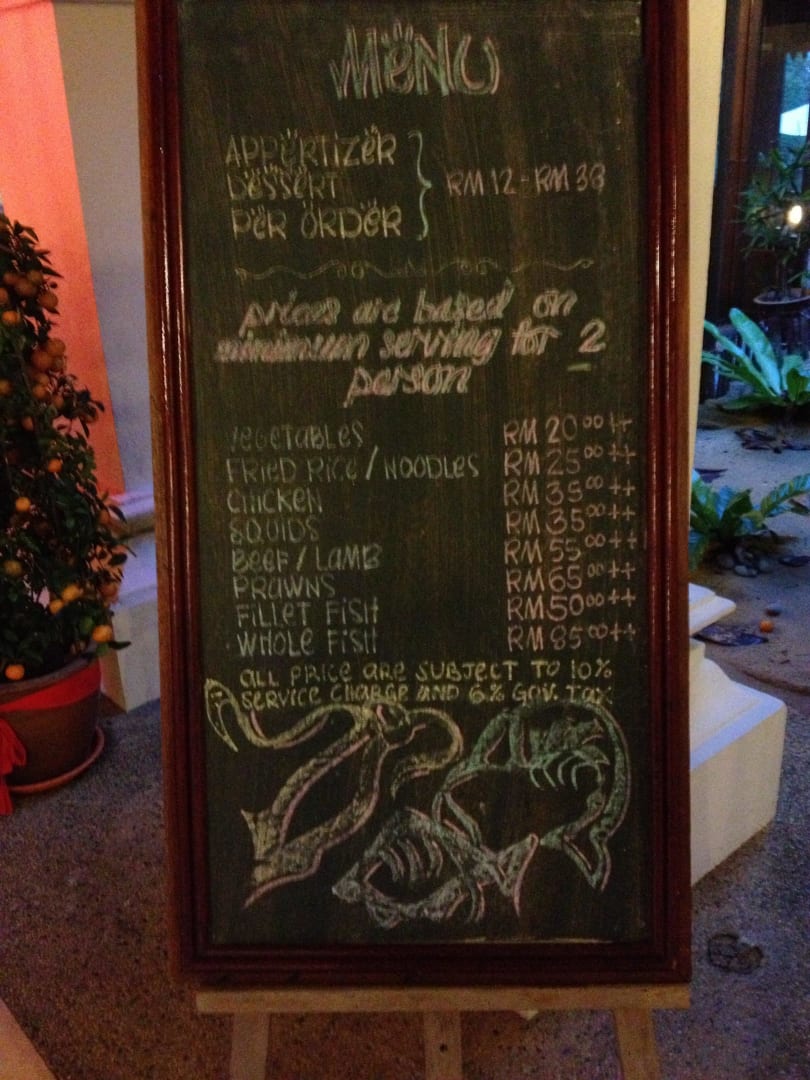 MENU
APPERTIZER
DESSERT
PER ORDER
RM 12 - RM 38
prices are based on
minimum serving for 2
person
VEGETABLES RM 20.00 ++
FRIED RICE / NOODLES RM 25.00 ++
CHICKEN RM 35.00 ++
SQUIDS RM 35.00 ++
BEEF / LAMB RM 55.00 ++
PRAWNS RM 65.00 ++
FILLET FISH RM 50.00 ++
WHOLE FISH RM 85.00 ++
ALL PRICE ARE SUBJECT TO 10%
SERVICE CHARGE AND 6% GOV. TAX